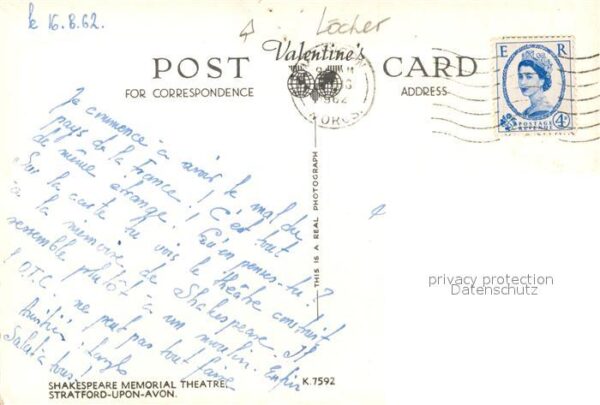 le 16.8.62.
Löcher
Valentine's
POST CARD
FOR CORRESPONDENCE
ADDRESS
E R
POSTAGE
REVENUE
4D
1962
Je commence à avoir le mal du
pays de la France ! C'est tout
de même étrange. Qu'en penses-tu ?
Sur la carte tu vois le théâtre construit
à la mémoire de Shakespeare. Il
ressemble plutôt à un moulin. Enfin
! O.T.C. ne peut pas tout faire
Salut à tous !
THIS IS A REAL PHOTOGRAPH
privacy protection
Datenschutz
SHAKESPEARE MEMORIAL THEATRE,
STRATFORD-UPON-AVON.
K.7592